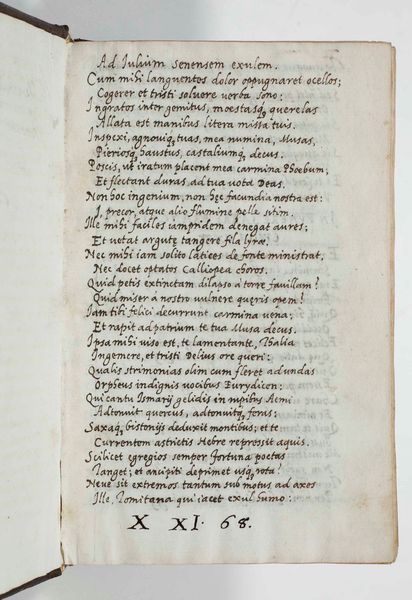 Ad Iulium Senensem exulem.
Cum mihi languentes dolor oppugnaret ocellos;
Cogerer et tristi soluere verba sono;
Ingratos inter gemitus, moestasq; querelas
Allata est manibus litera missa tuis.
Inspexi, agnouiq; tuas, mea numina, Musas,
Pieriosq; haustus, castaliumq; decus.
Poscis, ut iratum placent mea carmina Phoebum,
Et flectant duras ad tua vota Deas.
Non hoc ingenium, non hec facundia nostra est:
I, precor, atque alio flumine pelle sitim.
Ille mihi faciles iampridem denegat aures;
Et vetat argutę tangere fila lyrę.
Nec mihi iam solito latices de fonte ministrat,
Nec docet optatos Calliopea choros.
Quid petis extinctam dilapso à torre fauillam?
Quid miser a nostro vulnere queris opem?
Iam tibi felici decurrunt carmina vena;
Et rapit ad patrium te tua Musa decus.
Ipsa mihi viso est, te lamentante, Thalia
Ingemere, et tristi Delius ore queri:
Qualis strimonias olim cum fleret ad undas
Orpheus indignis vocibus Eurydicen:
Qui cantu Ismarÿ gelidis in rupibus Aemi
Adtonuit quercus, adtonuitq; feras:
Saxaq; bistonÿs deduxit montibus; et te
Currentem astrictis Hebre repressit aquis.
Scilicet egregios semper Fortuna poetas
Tanget; et ancipiti deprimet usq; rota?
Neue sit extremos tantum sub motus ad axos
Ille, Tomitana qui iacet exul humo:
X XI. 68.